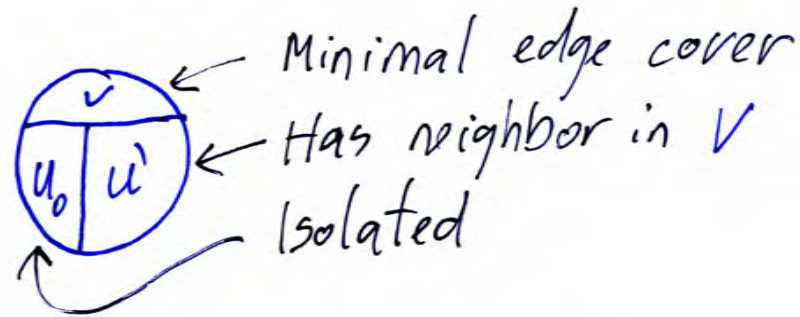 V
Minimal edge cover
Has neighbor in V
U₀ U'
Isolated